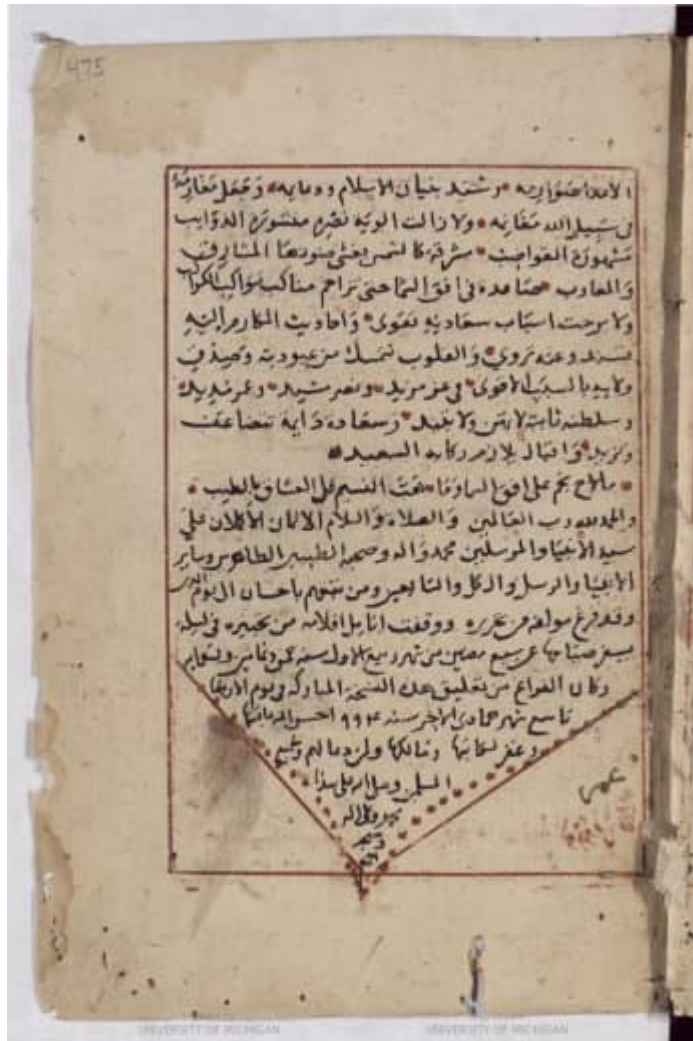 475
الاعدا صوارمه وشيد بنيان الاسلام ودعايمه وجعل مغارمه
في سبيل الله مغانمه ولا زالت الوية نصره منشورة الذوايب
مشهورة القواضب مشرقة كالشمس يغشى ضوءها المشارق
والمغارب صاعدة في افق السما حتى تزاحم مناكب الكواكب
ولا برحت اسباب سعادته تقوى واحاديث المكارم اليه
تسند وعنه تروي والقلوب تتمسك من عبوديته
بالسبب الاقوى في عز مزيد ونصر مشيد وعمر مديد
وسلطنة ثابتة لا ولا تبيد وسعادة دايمة تتضاعف
وتزيد واقبال يلازم ركابه السعيد
ما لاح نجم على افق السما وما هبت النسيم على العشاق بالطيب
والحمد لله رب العالمين والصلاة والسلام الاتمان الاكملان على
سيد الانبيا والمرسلين محمد واله وصحبه الطيبين الطاهرين وساير
الانبيا والرسل وال كل والتابعين ومن تبعهم باحسان الى يوم الدين
وقد فرغ مولفه من تحريره ووقفت انامل اقلامه من تحبيره في ليلة
يسفر صباحها عن سبع مضين من شهر ربيع الاول سنة
وكان الفراغ من تعليق هذه النسخة المباركة في يوم الاربعا
تاسع شهر جمادى الاخر سنة ٩٩٤ احسن الله
وغفر لكاتبها ومالكها ولوالديهم ولجميع
المسلمين وصلى الله على سيدنا
محمد وعلى اله
وصحبه
UNIVERSITY OF MICHIGAN UNIVERSITY OF MICHIGAN